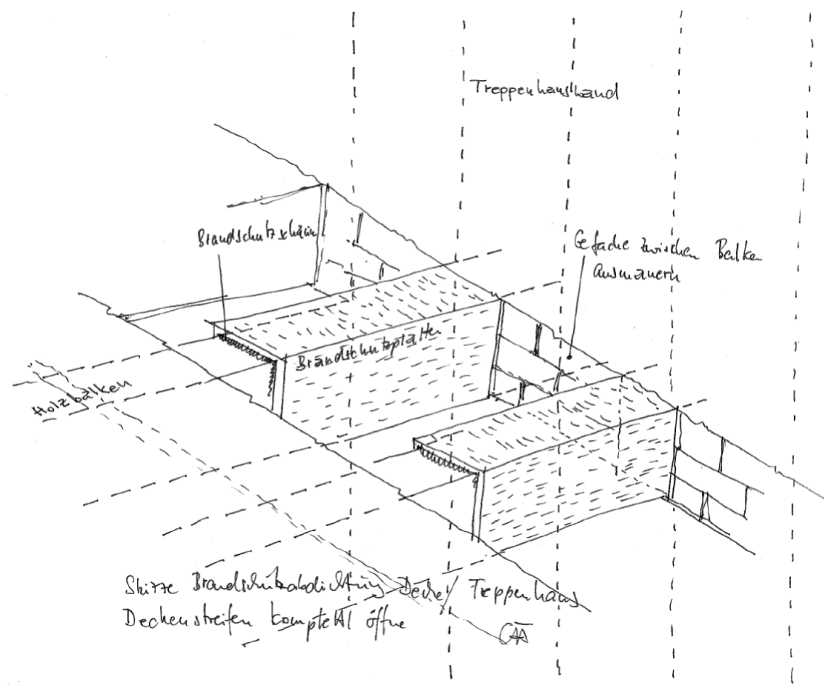 Treppenhauswand
Brandschutzschaum
Gefache zwischen Balken
ausmauern
Brandschutzplatten
Holzbalken
Skizze Brandschutzabdichtung Decke/ Treppenhaus
Deckenstreifen komplett öffne